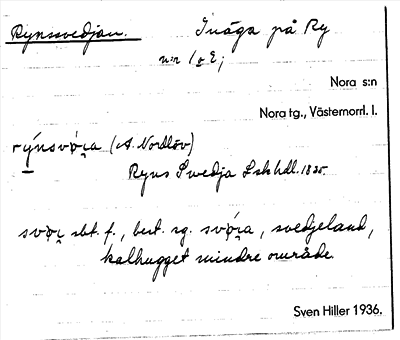 Rynssvedjan. Inäga på Ry
n:r 1 o 2;
Nora s:n
Nora tg., Västernorrl. l.
(A. Nordlöv)
Ryns Swedja Lskhdl. 1825.
sbt. f., best. sg. , svedjeland,
kalhugget mindre område.
Sven Hiller 1936.